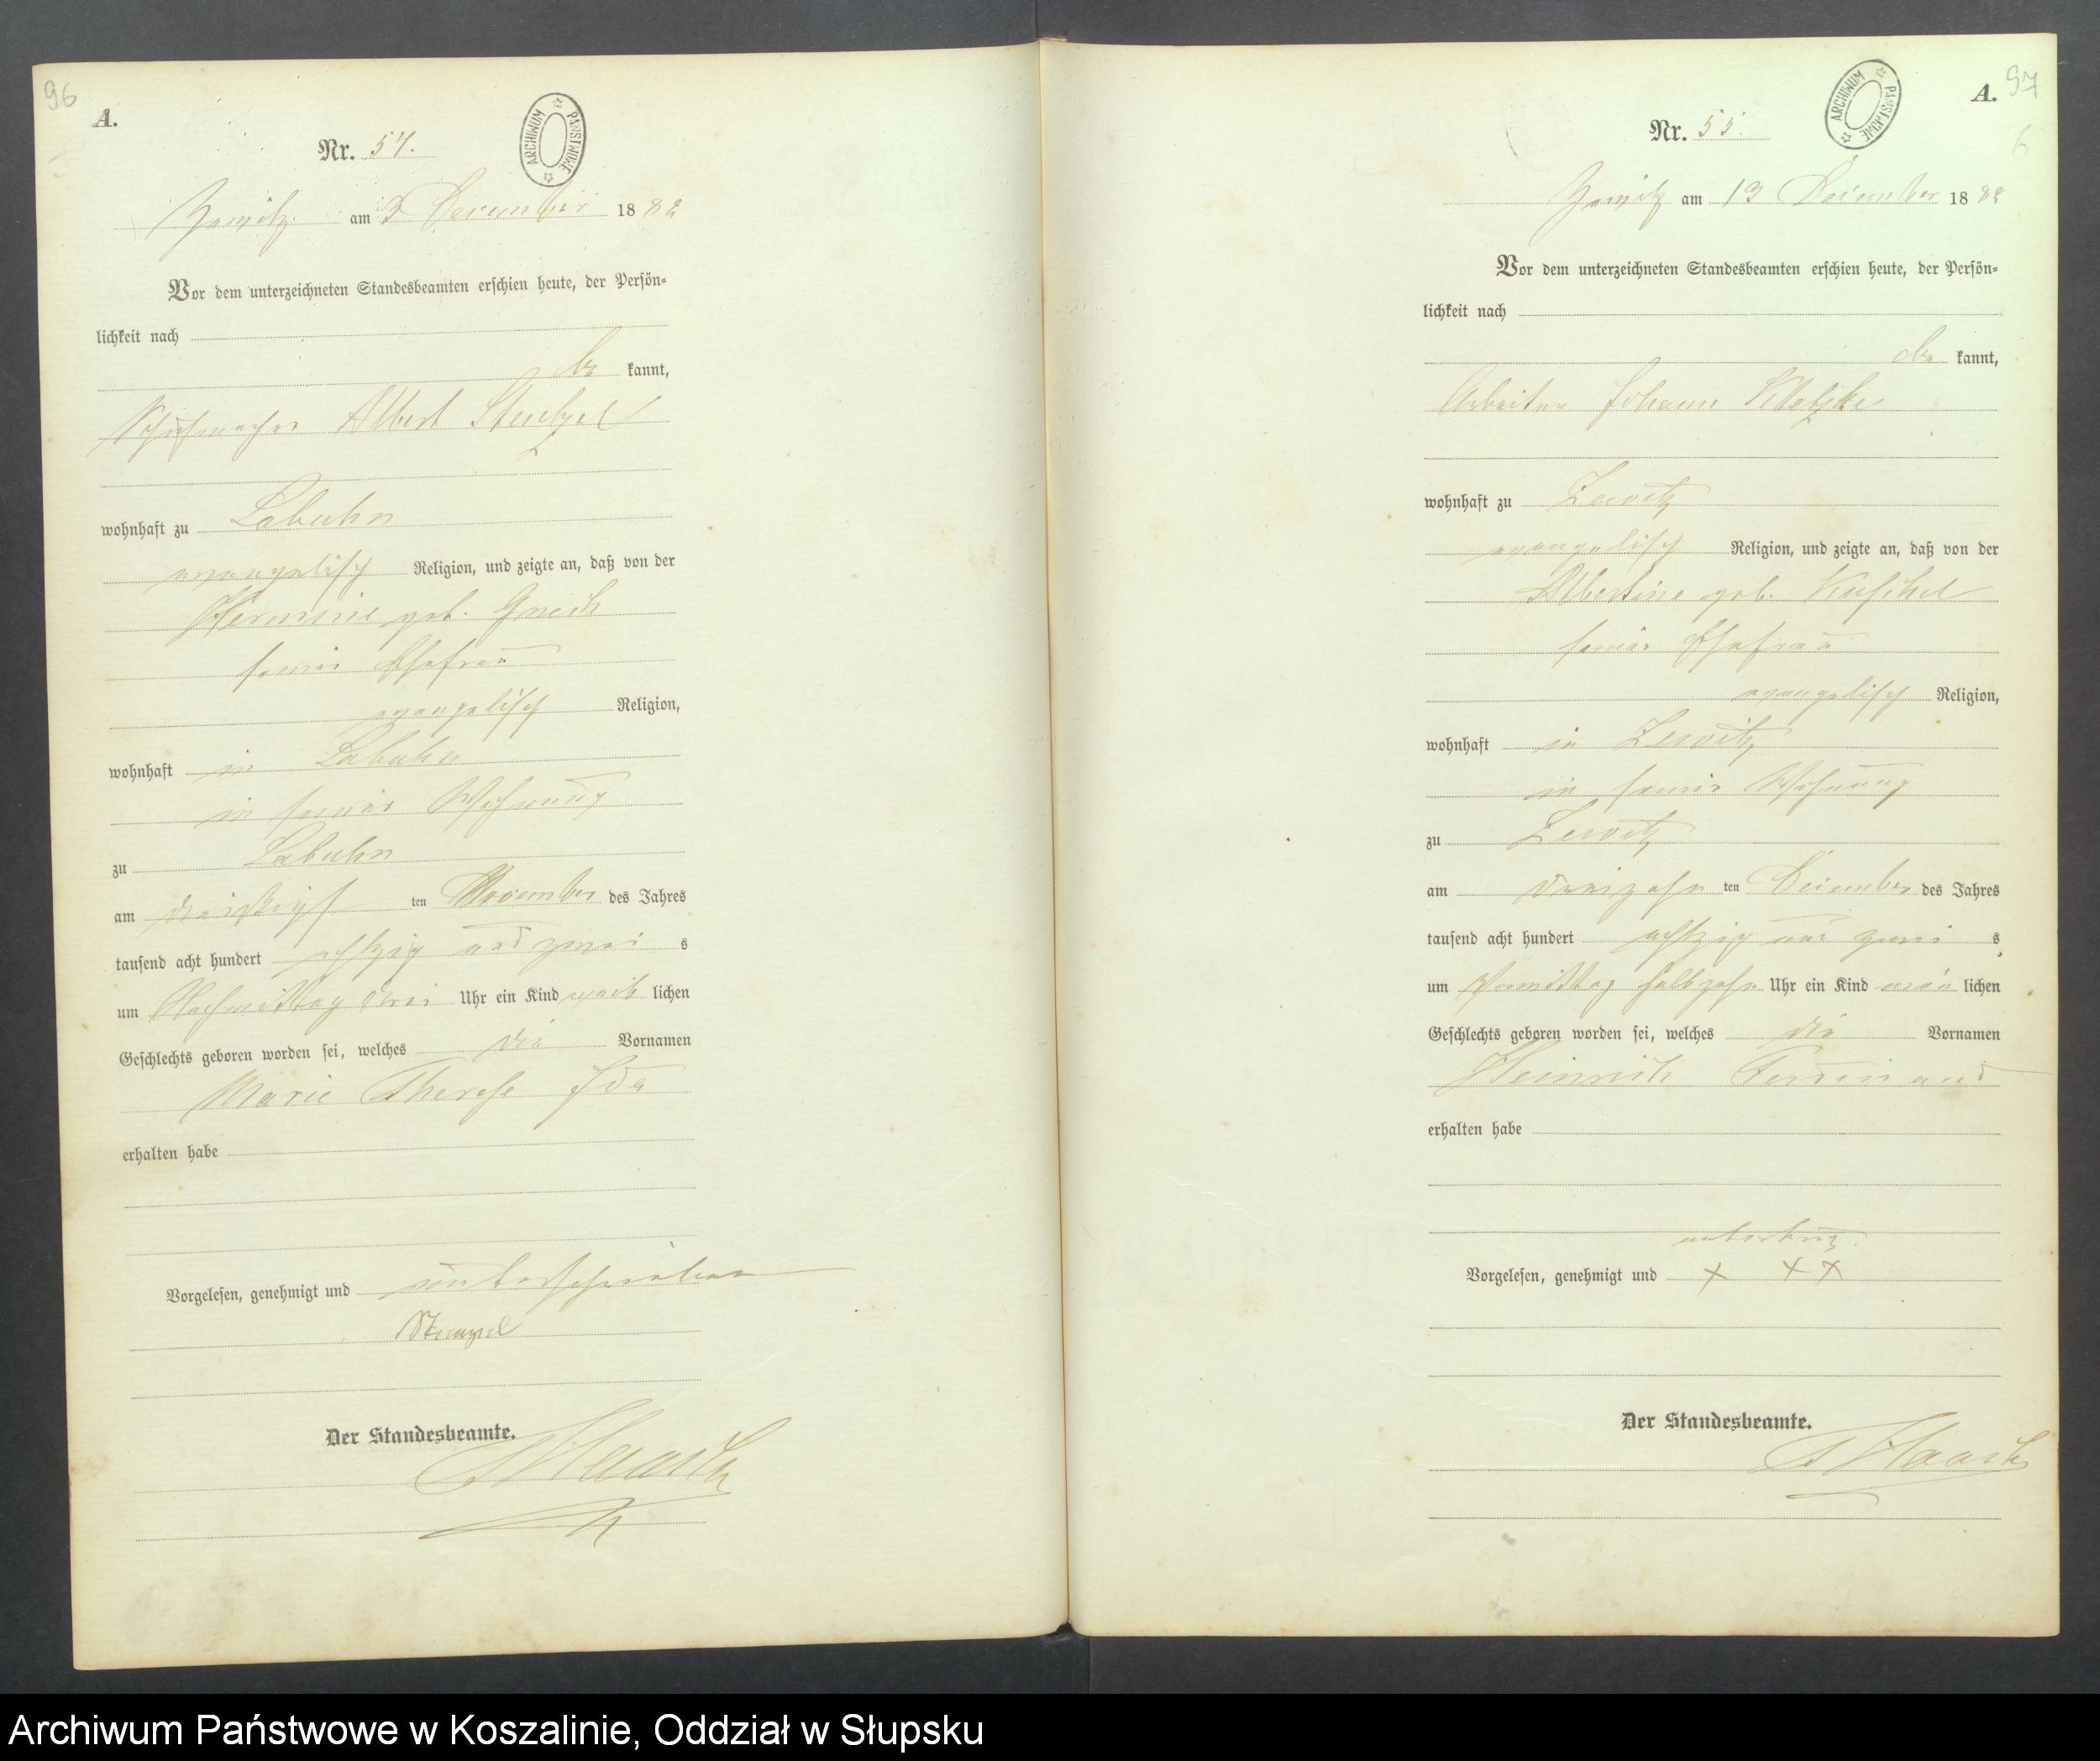 96
A.
Nr. 54.
ARCHIWUM PAŃSTWOWE
am 3 December 1882
Vor dem unterzeichneten Standesbeamten erschien heute, der Persön-
lichkeit nach
be kannt,
Schuhmacher Albert Stenzel
wohnhaft zu Labuhn
evangelisch Religion, und zeigte an, daß von der
Hermine geb. Gnech
seiner Ehefrau
evangelisch Religion,
wohnhaft in Labuhn
in seiner Wohnung
zu Labuhn
am dreißigst ten November des Jahres
tausend acht hundert achtzig und zwei s
um Nachmittag drei Uhr ein Kind weib lichen
Geschlechts geboren worden sei, welches die Vornamen
Marie Therese Ida
erhalten habe
Vorgelesen, genehmigt und unterschrieben
Stenzel
Der Standesbeamte.
Haack
97
A.
6
Nr. 55.
ARCHIWUM PAŃSTWOWE
am 13 December 1882
Vor dem unterzeichneten Standesbeamten erschien heute, der Persön-
lichkeit nach
be kannt,
Arbeiter Johann Kletzke
wohnhaft zu Zewitz
evangelisch Religion, und zeigte an, daß von der
Albertine geb. Kuschel
seiner Ehefrau
evangelisch Religion,
wohnhaft in Zewitz
in seiner Wohnung
zu Zewitz
am dreizehn ten December des Jahres
tausend acht hundert achtzig und zwei s
um Vormittag halb zehn Uhr ein Kind män lichen
Geschlechts geboren worden sei, welches die Vornamen
Heinrich Ferdinand
erhalten habe
unterkreuz
Vorgelesen, genehmigt und + + +
Der Standesbeamte.
Haack
Archiwum Państwowe w Koszalinie, Oddział w Słupsku